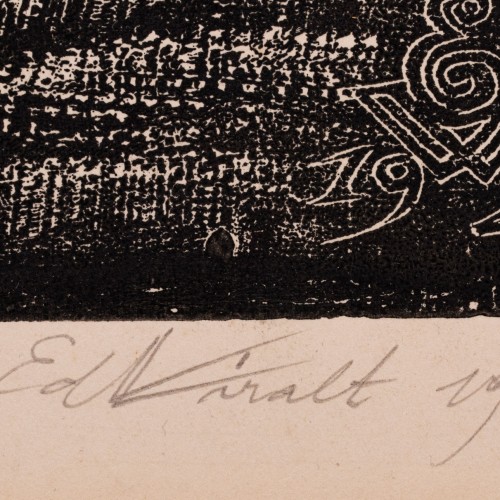 19
Ed Wiralt 19